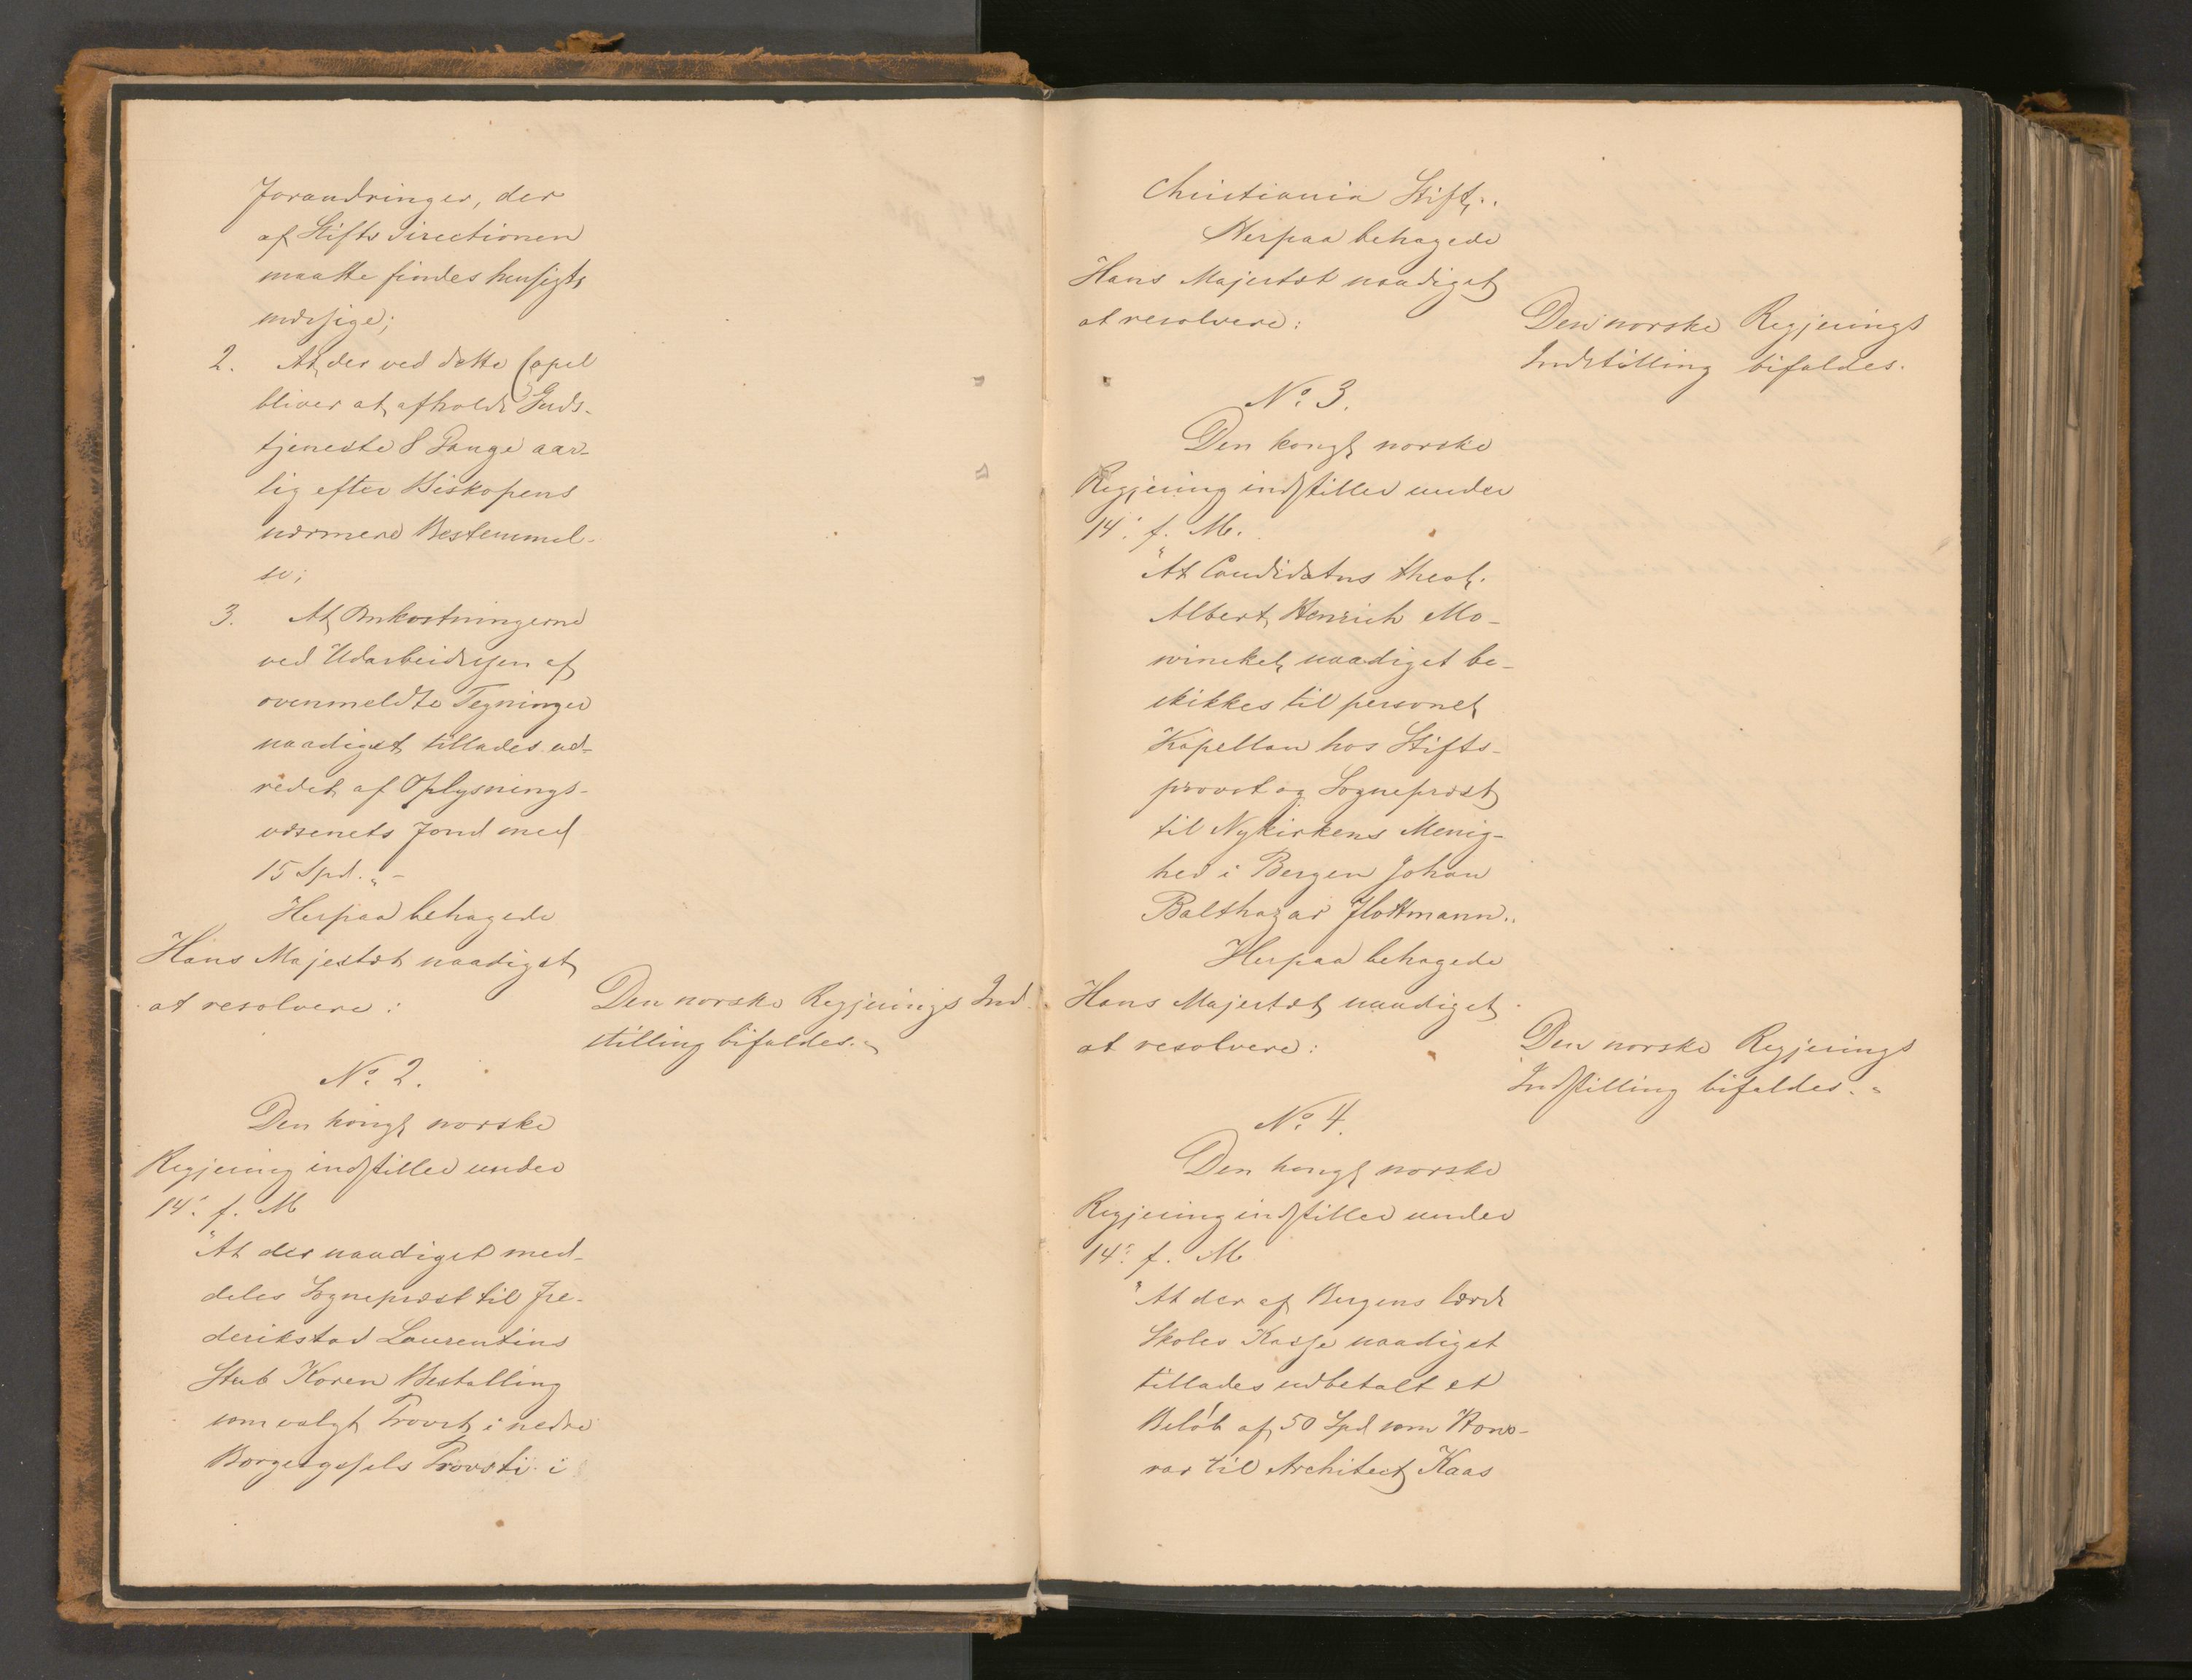 Forandringer, der
af Stiftsdirectionen
maatte findes hensigts
mæssige;
2. At der ved dette Capel
bliver at afholde Guds-
tjeneste 8 Gange aar-
lig efter Biskopens
nærmere Bestemmel-
se;
3. At Omkostningerne
ved Udarbeidelsen af
ovenmeldte Tegninger
naadigst tillades ud-
redet af Oplysnings-
væsenets Fond med
15 Spd."-
Herpaa behagede
Hans Majestæt naadigst
at resolvere:
Den norske Regjerings Ind-
stilling bifaldes."
No. 2.
Den kongl norske
Regjering indstiller under
14: f. M
"At der naadigst med-
deles Sognepræst til Fre-
derikstad Laurentius
Stub Koren Bestalling
som valgt Provst i nedre
Borgesyssels Provsti i
Christiania Stift".
Herpaa behagede
Hans Majestæt naadigst
at resolvere:
Den norske Regjerings
Indstilling bifaldes.
No. 3.
Den kongl norske
Regjering indstiller under
14: f. M.
"At Candidatus theol.
Albert Henrich Mo-
winckel naadigst be-
skikkes til personel
Kapellan hos Stifts-
provst og Sognepræst
til Nykirkens Menig-
hed i Bergen Johan
Balthazar Flottmann".
Herpaa behagede
Hans Majestæt naadigst
at resolvere:
Den norske Regjerings
Indstilling bifaldes."
No. 4.
Den kongl norske
Regjering indstiller under
14: f. M
"At der af Bergens lærde
Skoles Kasse naadigst
tillades udbetalt et
Beløb af 50 Spd som Hono-
rar til Architect Kaas